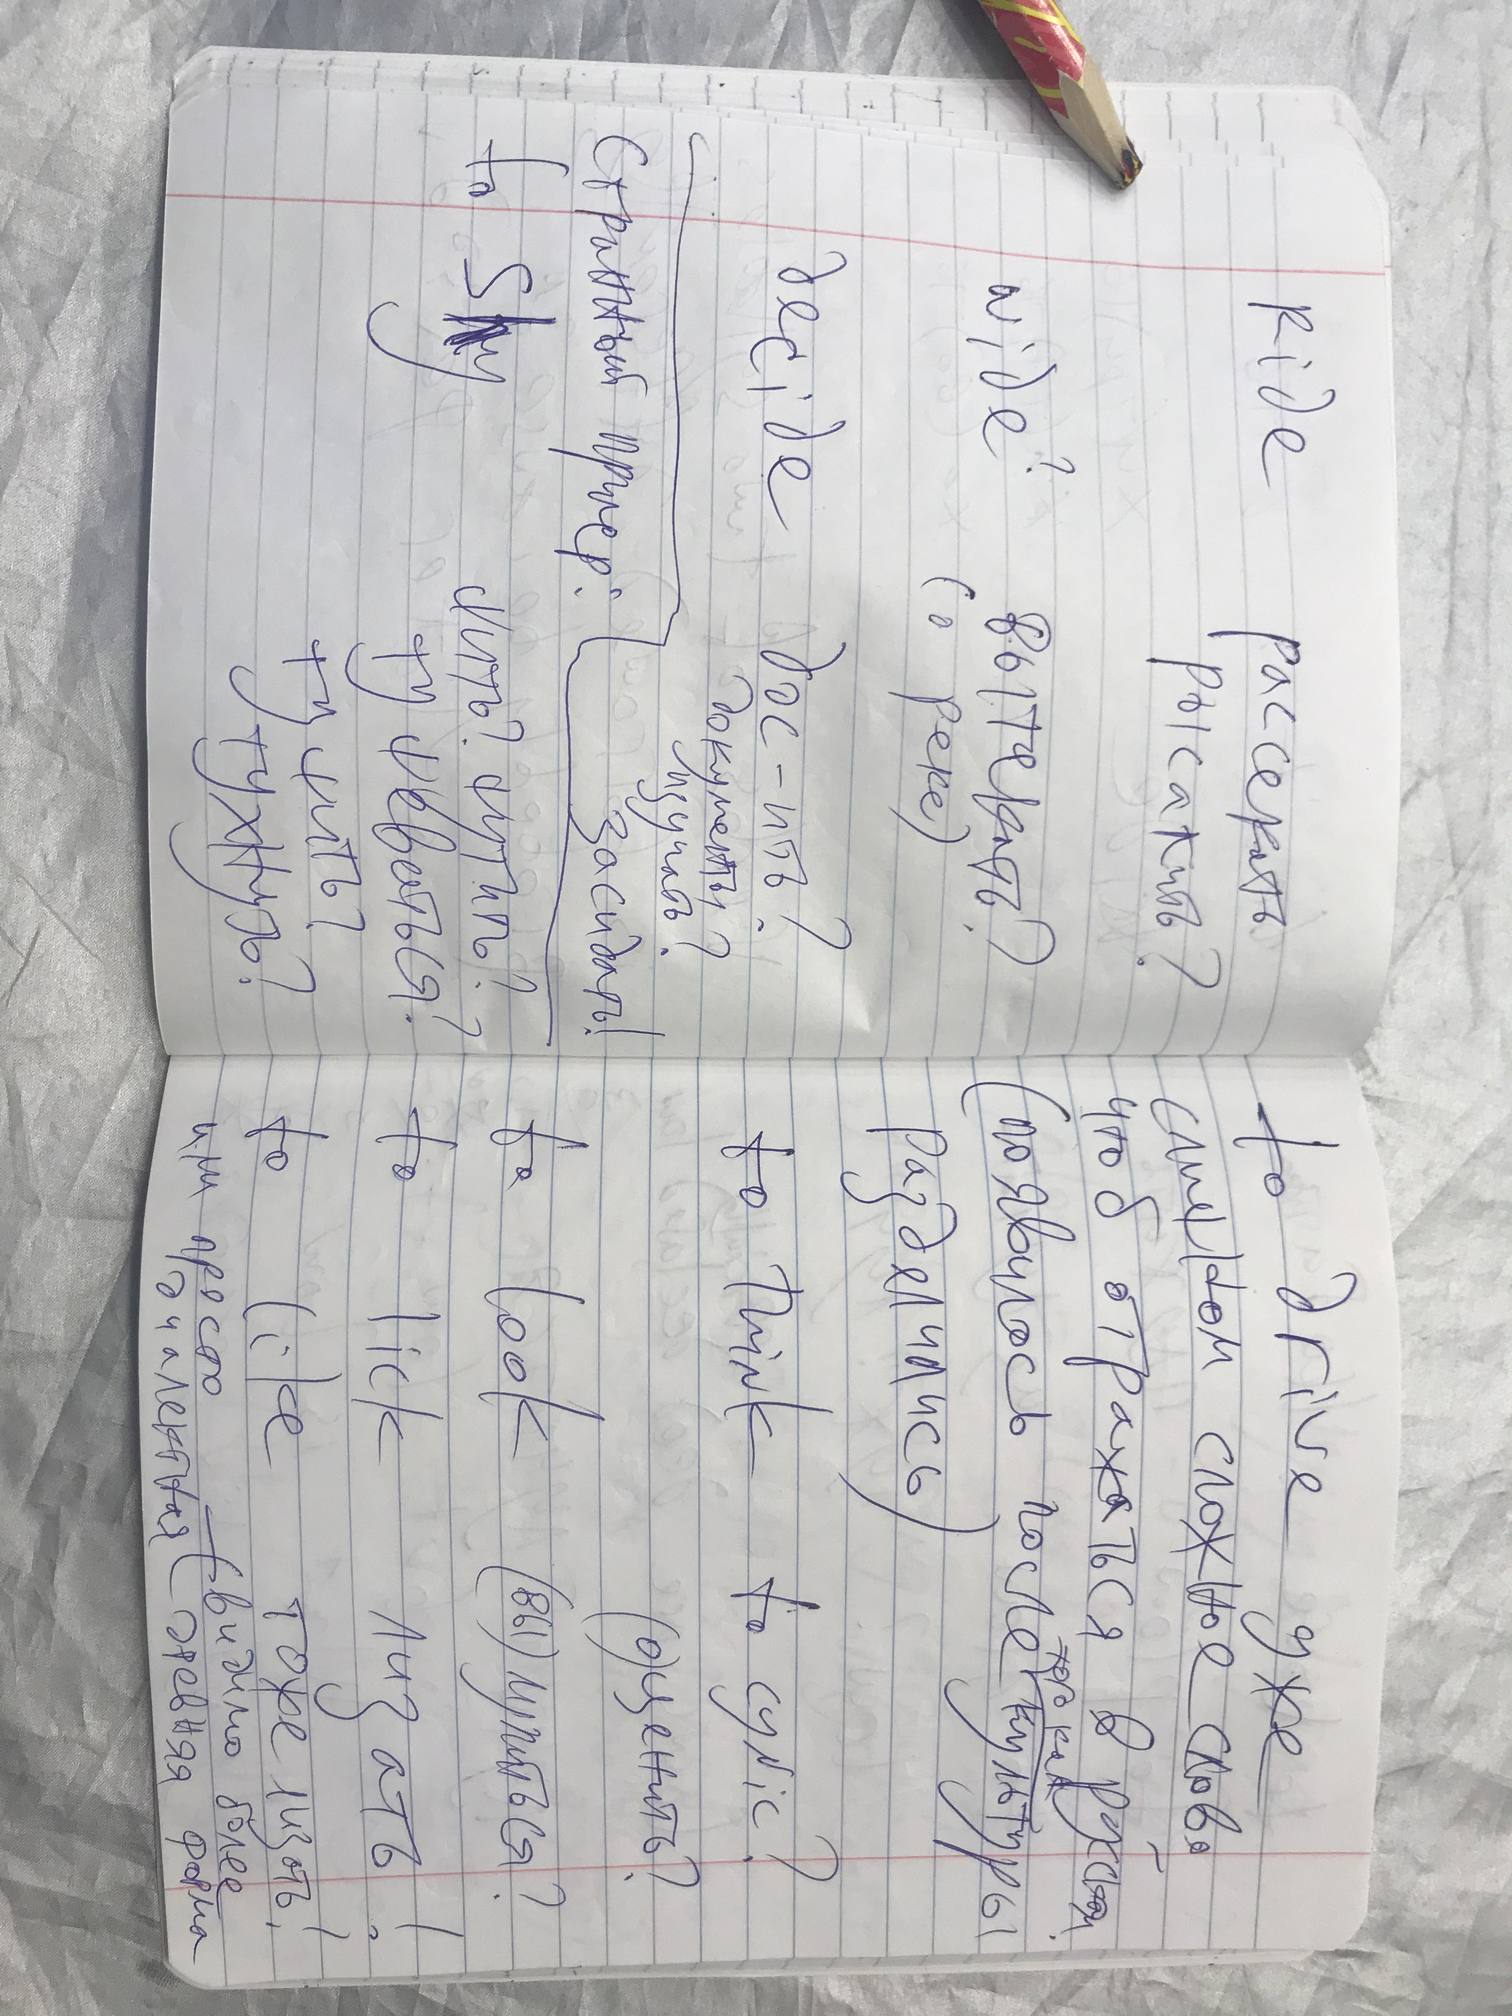 Ride рассекать
рысакить?
wide? вытекать?
(о реке)
decide дос-ить?
документы?
изучать?
засидать!
Странный пример:
to
чить? мутить?
ту иваться?
ту чить?
тухнуть?
to drive уже
слишком сложное слово
чтоб отражаться в русском
(появилось после того как
культуры
разделились)
to think to cynic?
(о)ценить?
to look (вы)лупиться?
to lick лизать!
to like тоже лизать!
или просто — (видимо более
диалектная древняя форма